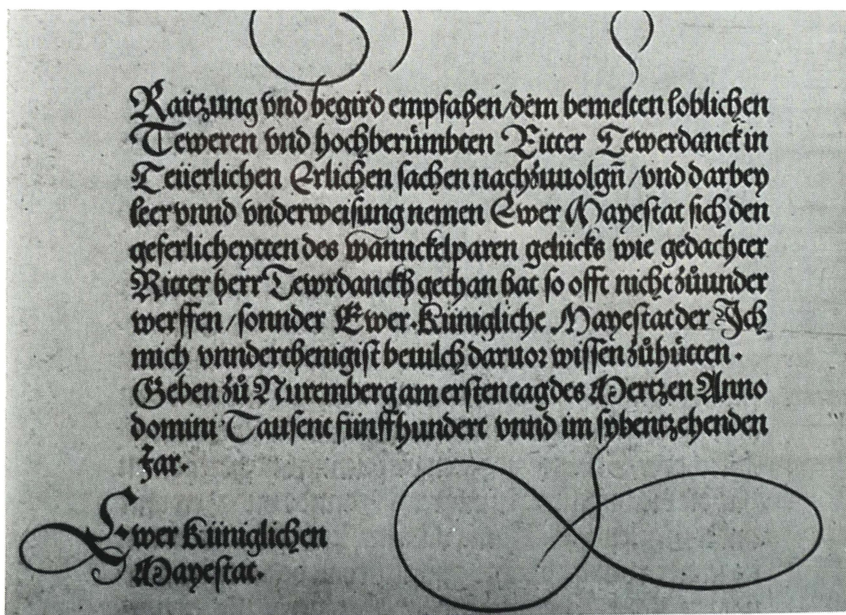 Raitzung vnd begird empfahen/dem bemelten loblichen
Teweren vnd hochberümbten Ritter Tewerdanck in
Teüerlichen Erlichen sachen nachzuuolgñ/vnd darbey
leer vnnd vnderweisung nemen Ewer Mayestat sich den
geferlicheytten des wannckelparen gelücks wie gedachter
Ritter herr Tewrdanckh gethan hat so offt nicht zůunder
werffen/sonnder Ewer. Künigliche Mayestat der Ich
mich vnnderthenigist beuilch daruor wissen zůhütten.
Geben zů Nuremberg am ersten tag des Mertzen Anno
domini Tausent fünffhundert vnnd im sybentzehenden
Jar.
Ewer Küniglichen
Mayestat.